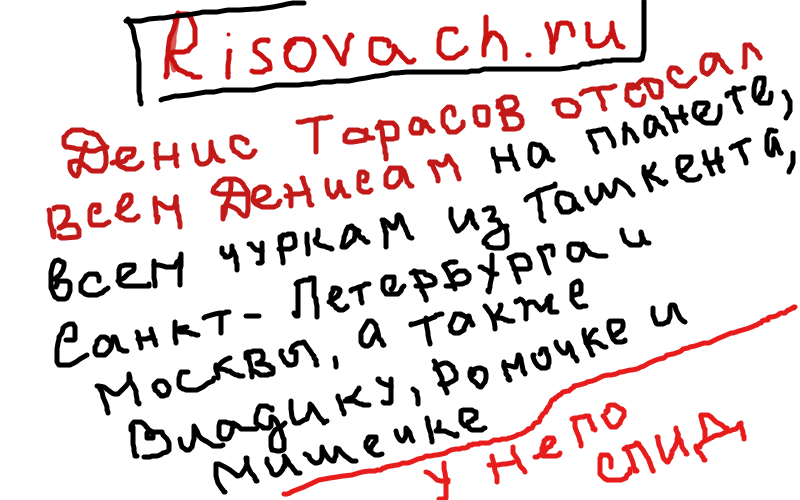 Risovach.ru
Денис Тарасов отсосал
всем Денисам на планете,
всем чуркам из Ташкента,
Санкт-Петербурга и
Москвы, а также
Владику, Ромочке и
Мишеньке
у него
СПИД